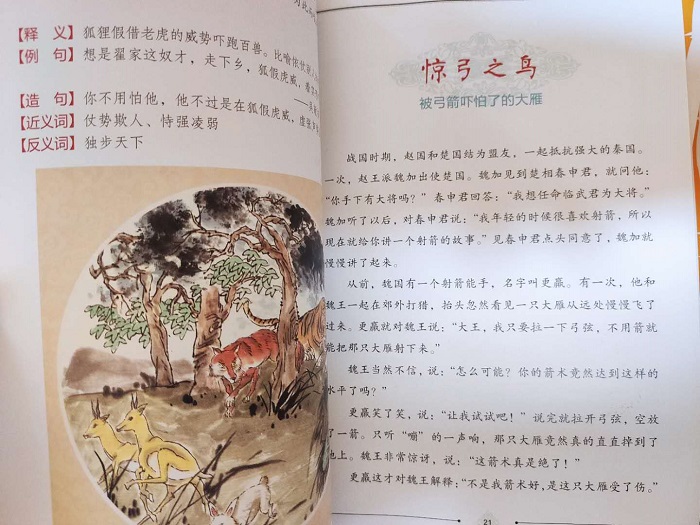 【释 义】狐狸假借老虎的威势吓跑百兽。比喻依仗别人
【例 句】想是翟家这奴才，走下乡，狐假虎威，看
【造 句】你不用怕他，他不过是在狐假虎威，虚张
【近义词】仗势欺人、恃强凌弱
【反义词】独步天下
惊弓之鸟
被弓箭吓怕了的大雁
战国时期，赵国和楚国结为盟友，一起抵抗强大的秦国。
一次，赵王派魏加出使楚国。魏加见到楚相春申君，就问他：
“你手下有大将吗？”春申君回答：“我想任命临武君为大将。”
魏加听了以后，对春申君说：“我年轻的时候很喜欢射箭，所以
现在就给你讲一个射箭的故事。”见春申君点头同意了，魏加就
慢慢讲了起来。
从前，魏国有一个射箭能手，名字叫更羸。有一次，他和
魏王一起在郊外打猎，抬头忽然看见一只大雁从远处慢慢飞了
过来。更羸就对魏王说：“大王，我只要拉一下弓弦，不用箭就
能把那只大雁射下来。”
魏王当然不信，说：“怎么可能？你的箭术竟然达到这样的
水平了吗？”
更羸笑了笑，说：“让我试试吧！”说完就拉开弓弦，空放
了一箭。只听“嘣”的一声响，那只大雁竟然真的直直掉到了
地上。魏王非常惊讶，说：“这箭术真是绝了！”
更羸这才对魏王解释：“不是我箭术好，是这只大雁受了伤。”
21